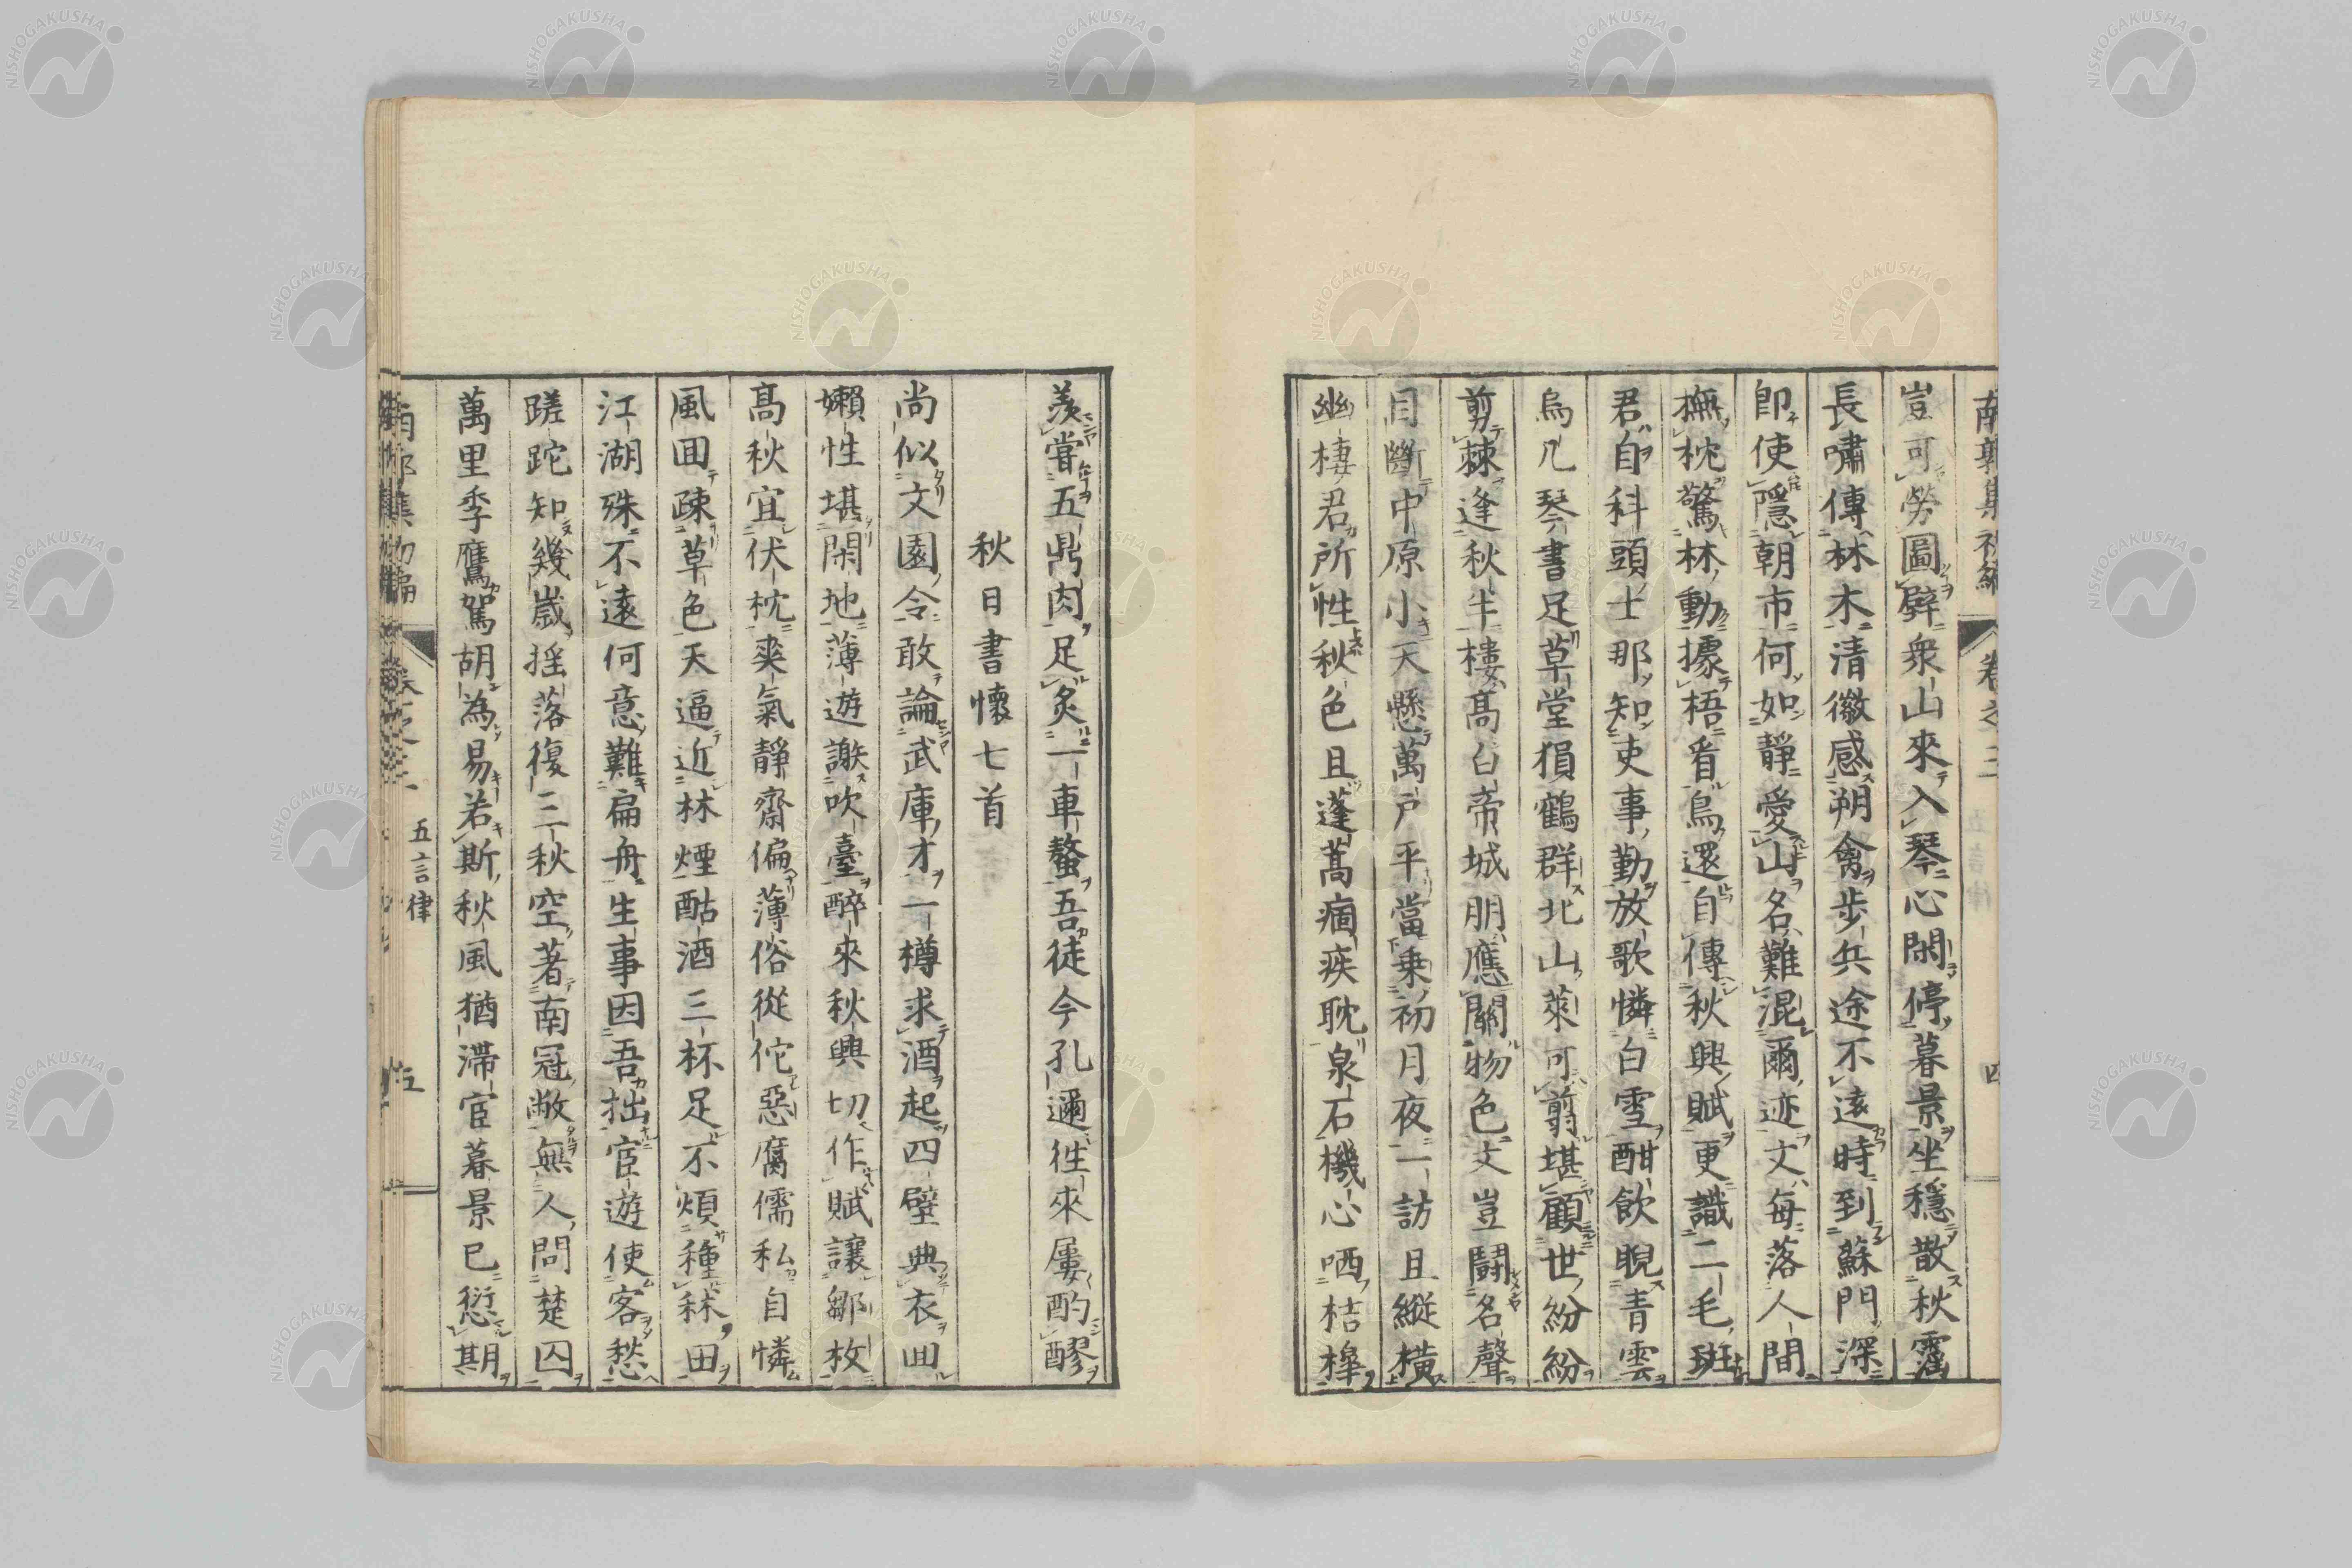 豈可勞圖障衆山來入琴心閑停暮景坐穩散秋霑
長嘯傳林木清徽感朔禽步兵途不遠時到蘇門深
卽使隱朝市何如靜愛山名難混爾迹丈每落人間
撫枕驚林動據梧看鳥還自傳秋興賦更識二毛斑
君自科頭士那知吏事勤放歌憐白雪酣飲睨青雲
烏几琴書足草堂猿鶴群北山萊可剪堪顧世紛紛
剪棘逢秋半樓高白帝城朋應關物色丈豈鬪名聲
目斷中原小天懸萬戶平當乘初月夜一訪且縱橫
幽棲君所性秋色且蓬蒿痼疾耽泉石機心哂桔槹
羨嘗五鼎肉足炙一車螯吾徒今孔邇徃來屢酌醪
秋日書懷七首
尚似文園令敢論武庫才一樽求酒起四壁典衣回
嬾性堪閑地薄遊謝吹臺醉來秋興切作賦讓鄒枚
髙秋宜伏枕爽氣靜齋偏薄俗從佗惡腐儒私自憐
風回疎草色天逼近林煙酤酒三杯足不煩種秫田
江湖殊不遠何意難扁舟生事因吾拙宦遊使客愁
蹉跎知幾歲揺落復三秋空著南冠敝無人問楚囚
萬里季鷹駕胡為易若斯秋風猶滯宦暮景已愆期
南郭集初編 卷之三 五言律 五